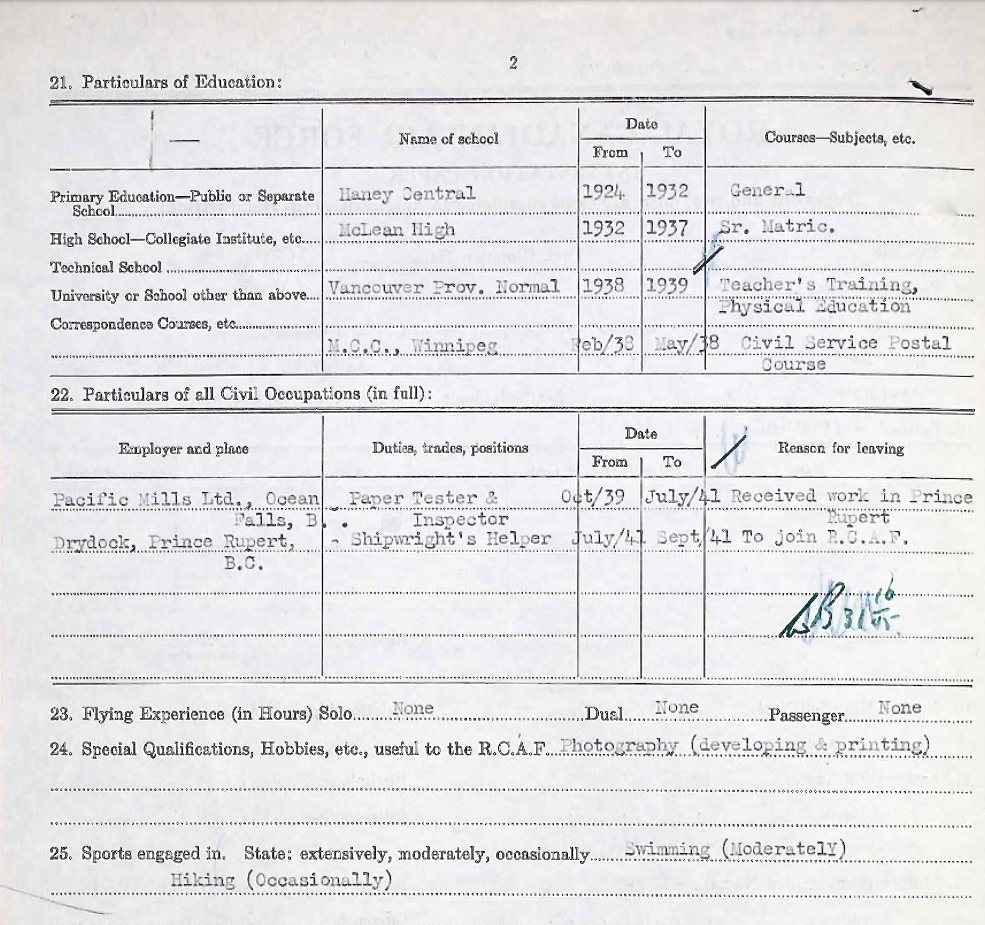 2
21. Particulars of Education:
— Name of school Date Courses—Subjects, etc.
From To
Primary Education—Public or Separate School Haney Central 1924 1932 General
High School—Collegiate Institute, etc. McLean High 1932 1937 Sr. Matric.
Technical School
University or School other than above Vancouver Prov. Normal 1938 1939 Teacher's Training,
Physical Education
Correspondence Courses, etc.
M.C.C., Winnipeg Feb/38 May/38 Civil Service Postal
Course
22. Particulars of all Civil Occupations (in full):
Employer and place Duties, trades, positions Date Reason for leaving
From To
Pacific Mills Ltd., Ocean - Paper Tester & Oct/39 July/41 Received work in Prince
Falls, B. . Inspector Rupert
Drydock, Prince Rupert, - Shipwright's Helper July/41 Sept/41 To join R.C.A.F.
B.C.
23. Flying Experience (in Hours) Solo None Dual None Passenger None
24. Special Qualifications, Hobbies, etc., useful to the R.C.A.F. Photography (developing & printing)
25. Sports engaged in. State: extensively, moderately, occasionally Swimming (Moderately)
Hiking (Occasionally)